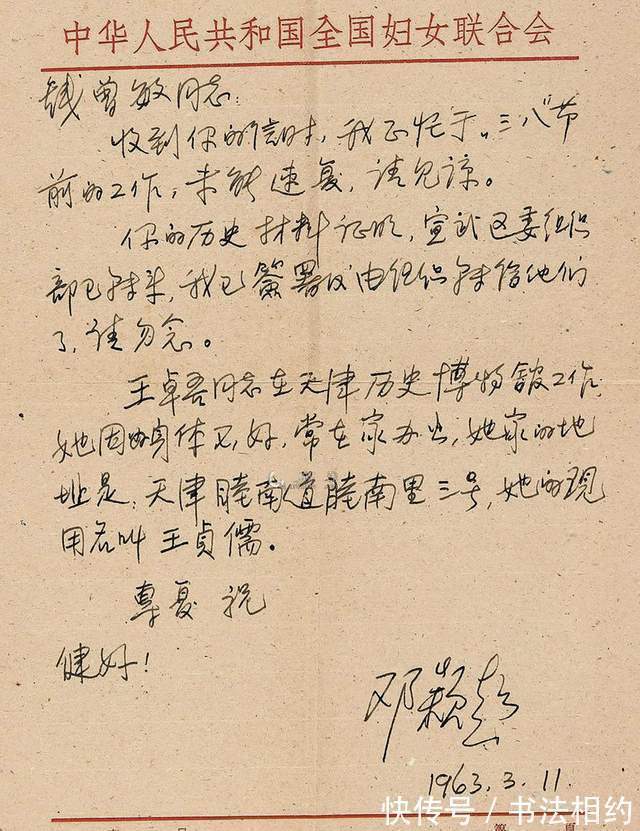 中华人民共和国全国妇女联合会
钱曾敏同志：
收到你的信时，我正忙于"三八"节
前的工作，未能速复，请见谅。
你的历史材料证明，宣武区委组织
部已转来，我已签署仪由组织转给他们
了，请勿念。
王卓吾同志在天津历史博物馆工作，
她因为身体不好，常在家办公，她家的地
址是：天津睦南道睦南里三号，她的现
用名叫王贞儒。
专复 祝
健好！
邓颖超
1963.3.11.
快传号／书法相约